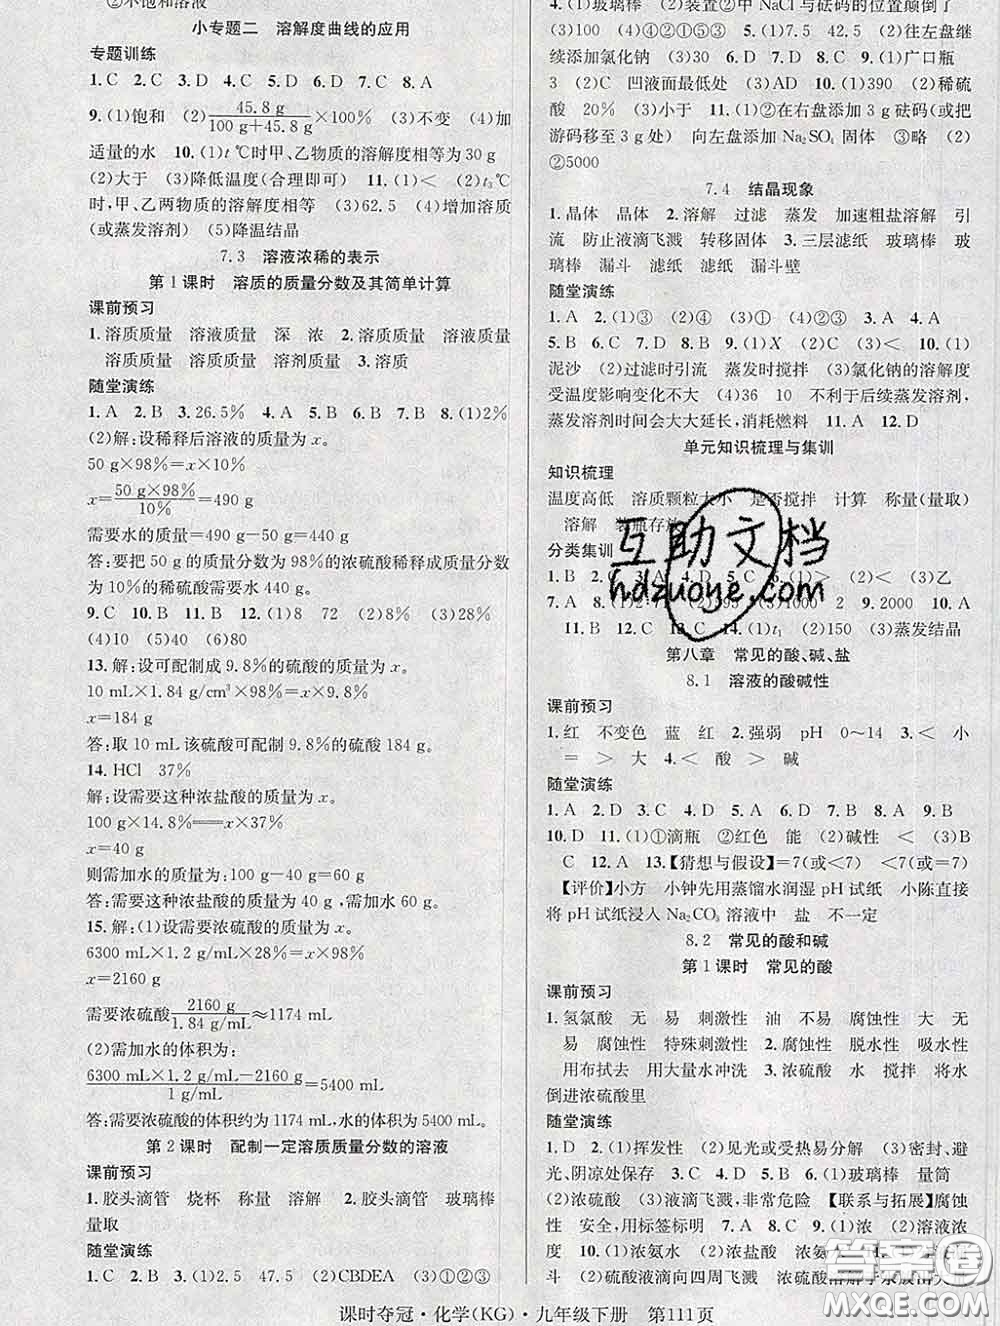 ②不饱和溶液
小专题二 溶解度曲线的应用
专题训练
1.C 2.C 3.D 4.C 5.D 6.D 7.C 8.A
9.(1)饱和 (2)45.8 g/(100 g+45.8 g)×100% (3)不变 (4)加
适量的水 10.(1)t℃时甲、乙物质的溶解度相等为30 g
(2)大于 (3)降低温度(合理即可) 11.(1)< (2)t₃℃
时,甲、乙两物质的溶解度相等 (3)62.5 (4)增加溶质
(或蒸发溶剂) (5)降温结晶
7.3 溶液浓稀的表示
第1课时 溶质的质量分数及其简单计算
课前预习
1.溶质质量 溶液质量 深 浓 2.溶质质量 溶液质量
溶质质量 溶质质量 溶剂质量 3.溶质
随堂演练
1.A 2.A 3.26.5% 4.A 5.B 6.D 7.B 8.(1)2%
(2)解:设稀释后溶液的质量为x。
50 g×98%=x×10%
x=50 g×98%/10%=490 g
需要水的质量=490 g-50 g=440 g
答:要把50 g的质量分数为98%的浓硫酸稀释成质量分数
为10%的稀硫酸需要水440 g。
9.C 10.B 11.D 12.(1)8 72 (2)8% (3)28%
(4)10 (5)40 (6)80
13.解:设可配制成9.8%的硫酸的质量为x。
10 mL×1.84 g/cm³×98%=x×9.8%
x=184 g
答:取10 mL该硫酸可配制9.8%的硫酸184 g。
14.HCl 37%
解:设需要这种浓盐酸的质量为x。
100 g×14.8%=x×37%
x=40 g
则需加水的质量为:100 g-40 g=60 g
答:需要这种浓盐酸的质量为40 g,需加水60 g。
15.解:(1)设需要浓硫酸的质量为x。
6300 mL×1.2 g/mL×28%=x×98%
x=2160 g
需要浓硫酸2160 g/1.84 g/mL≈1174 mL
(2)需加水的体积为:
(6300 mL×1.2 g/mL-2160 g)/1 g/mL=5400 mL
答:需要浓硫酸的体积约为1174 mL,水的体积为5400 mL。
第2课时 配制一定溶质质量分数的溶液
课前预习
1.胶头滴管 烧杯 称量 溶解 2.胶头滴管 玻璃棒
量取
随堂演练
1.C 2.B 3.(1)2.5 47.5 (2)CBDEA (3)①②③
4.(1)玻璃棒 (2)装置②中NaCl与砝码的位置颠倒了
(3)100 (4)④②①⑤③ 5.(1)7.5 42.5 (2)往左盘
继续添加氯化钠 (3)30 6.D 7.D 8.C 9.(1)广口瓶
3 (2)C 凹液面最低处 (2)A 10.(1)390 (2)稀硫
酸 20% (3)小于 11.(1)②在右盘添加3 g砝码(或把
游码移至3 g处) 向左盘添加Na₂SO₄固体 ③略 (2)
②5000
7.4 结晶现象
1.晶体 晶体 2.溶解 过滤 蒸发 加速粗盐溶解 引
流 防止液滴飞溅 转移固体 3.三层滤纸 玻璃棒 玻
璃棒 漏斗 滤纸 滤纸 漏斗壁
随堂演练
1.A 2.(1)③ (2)④ (3)① (4)②③ 3.A 4.A
5.B 6.C 7.D 8.B 9.(1)X (2)C 10.(1)
泥沙 (2)过滤时引流 蒸发时搅拌 (3)氯化钠的溶解度
受温度影响变化不大 (4)36 10 不利于后续蒸发溶剂,
蒸发溶剂时间会大大延长,消耗燃料 11.A 12.D
单元知识梳理与集训
知识梳理
温度高低 溶质颗粒大小 是否搅拌 计算 称量(量取)
溶解 装瓶存放
分类集训
1.B 2.B 3.A 4.D 5.C (2)< (3)乙
7.A 8. (3)1000 2 9.2000 10.A
11.B 12.C 13.C 14.(1)t₁ (2)150 (3)蒸发结晶
第八章 常见的酸、碱、盐
8.1 溶液的酸碱性
课前预习
1.红 不变色 蓝 红 2.强弱 pH 0~14 3.< 小
= > 大 4.< > 碱
随堂演练
1.A 2.D 3.C 4.D 5.A 6.D 7.B 8.A 9.B
10.D 11.(1)①滴瓶 ②红色 能 (2)碱性 < (3)B
C 12.A 13.【猜想与假设】=7(或<7) <7(或=7)
【评价】小方 小钟先用蒸馏水润湿pH试纸 小陈直接
将pH试纸浸入Na₂CO₃溶液中 盐 不一定
8.2 常见的酸和碱
第1课时 常见的酸
课前预习
1.氢氯酸 无 易 刺激性 油 不易 腐蚀性 大 无
易 腐蚀性 特殊刺激性 2.腐蚀性 脱水性 吸水性
用布拭去 用大量水冲洗 3.浓硫酸 水 搅拌 将水
倒进浓硫酸里
随堂演练
1.D 2.(1)挥发性 (2)见光或受热易分解 (3)密封、避
光、阴凉处保存 3.C 4.D 5.C 6.(1)玻璃棒 量筒
(2)浓硫酸 (3)液滴飞溅,非常危险 【联系与拓展】腐蚀
性 安全,用标签标明 7.B 8.C 9.(1)溶液浓
度 10.(1)浓氨水 (2)浓盐酸 浓氨
斗 (2)浓硫酸液滴向四周飞溅 浓硫酸溶于水放出大
课时夺冠·化学(KG)·九年级下册 第111页
互助文档
hdzuoye.com
答案圈
MXQE.COM